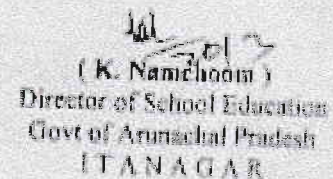 ( K. Namchoom )
Director of School Education
Govt of Arunachal Pradesh
ITANAGAR